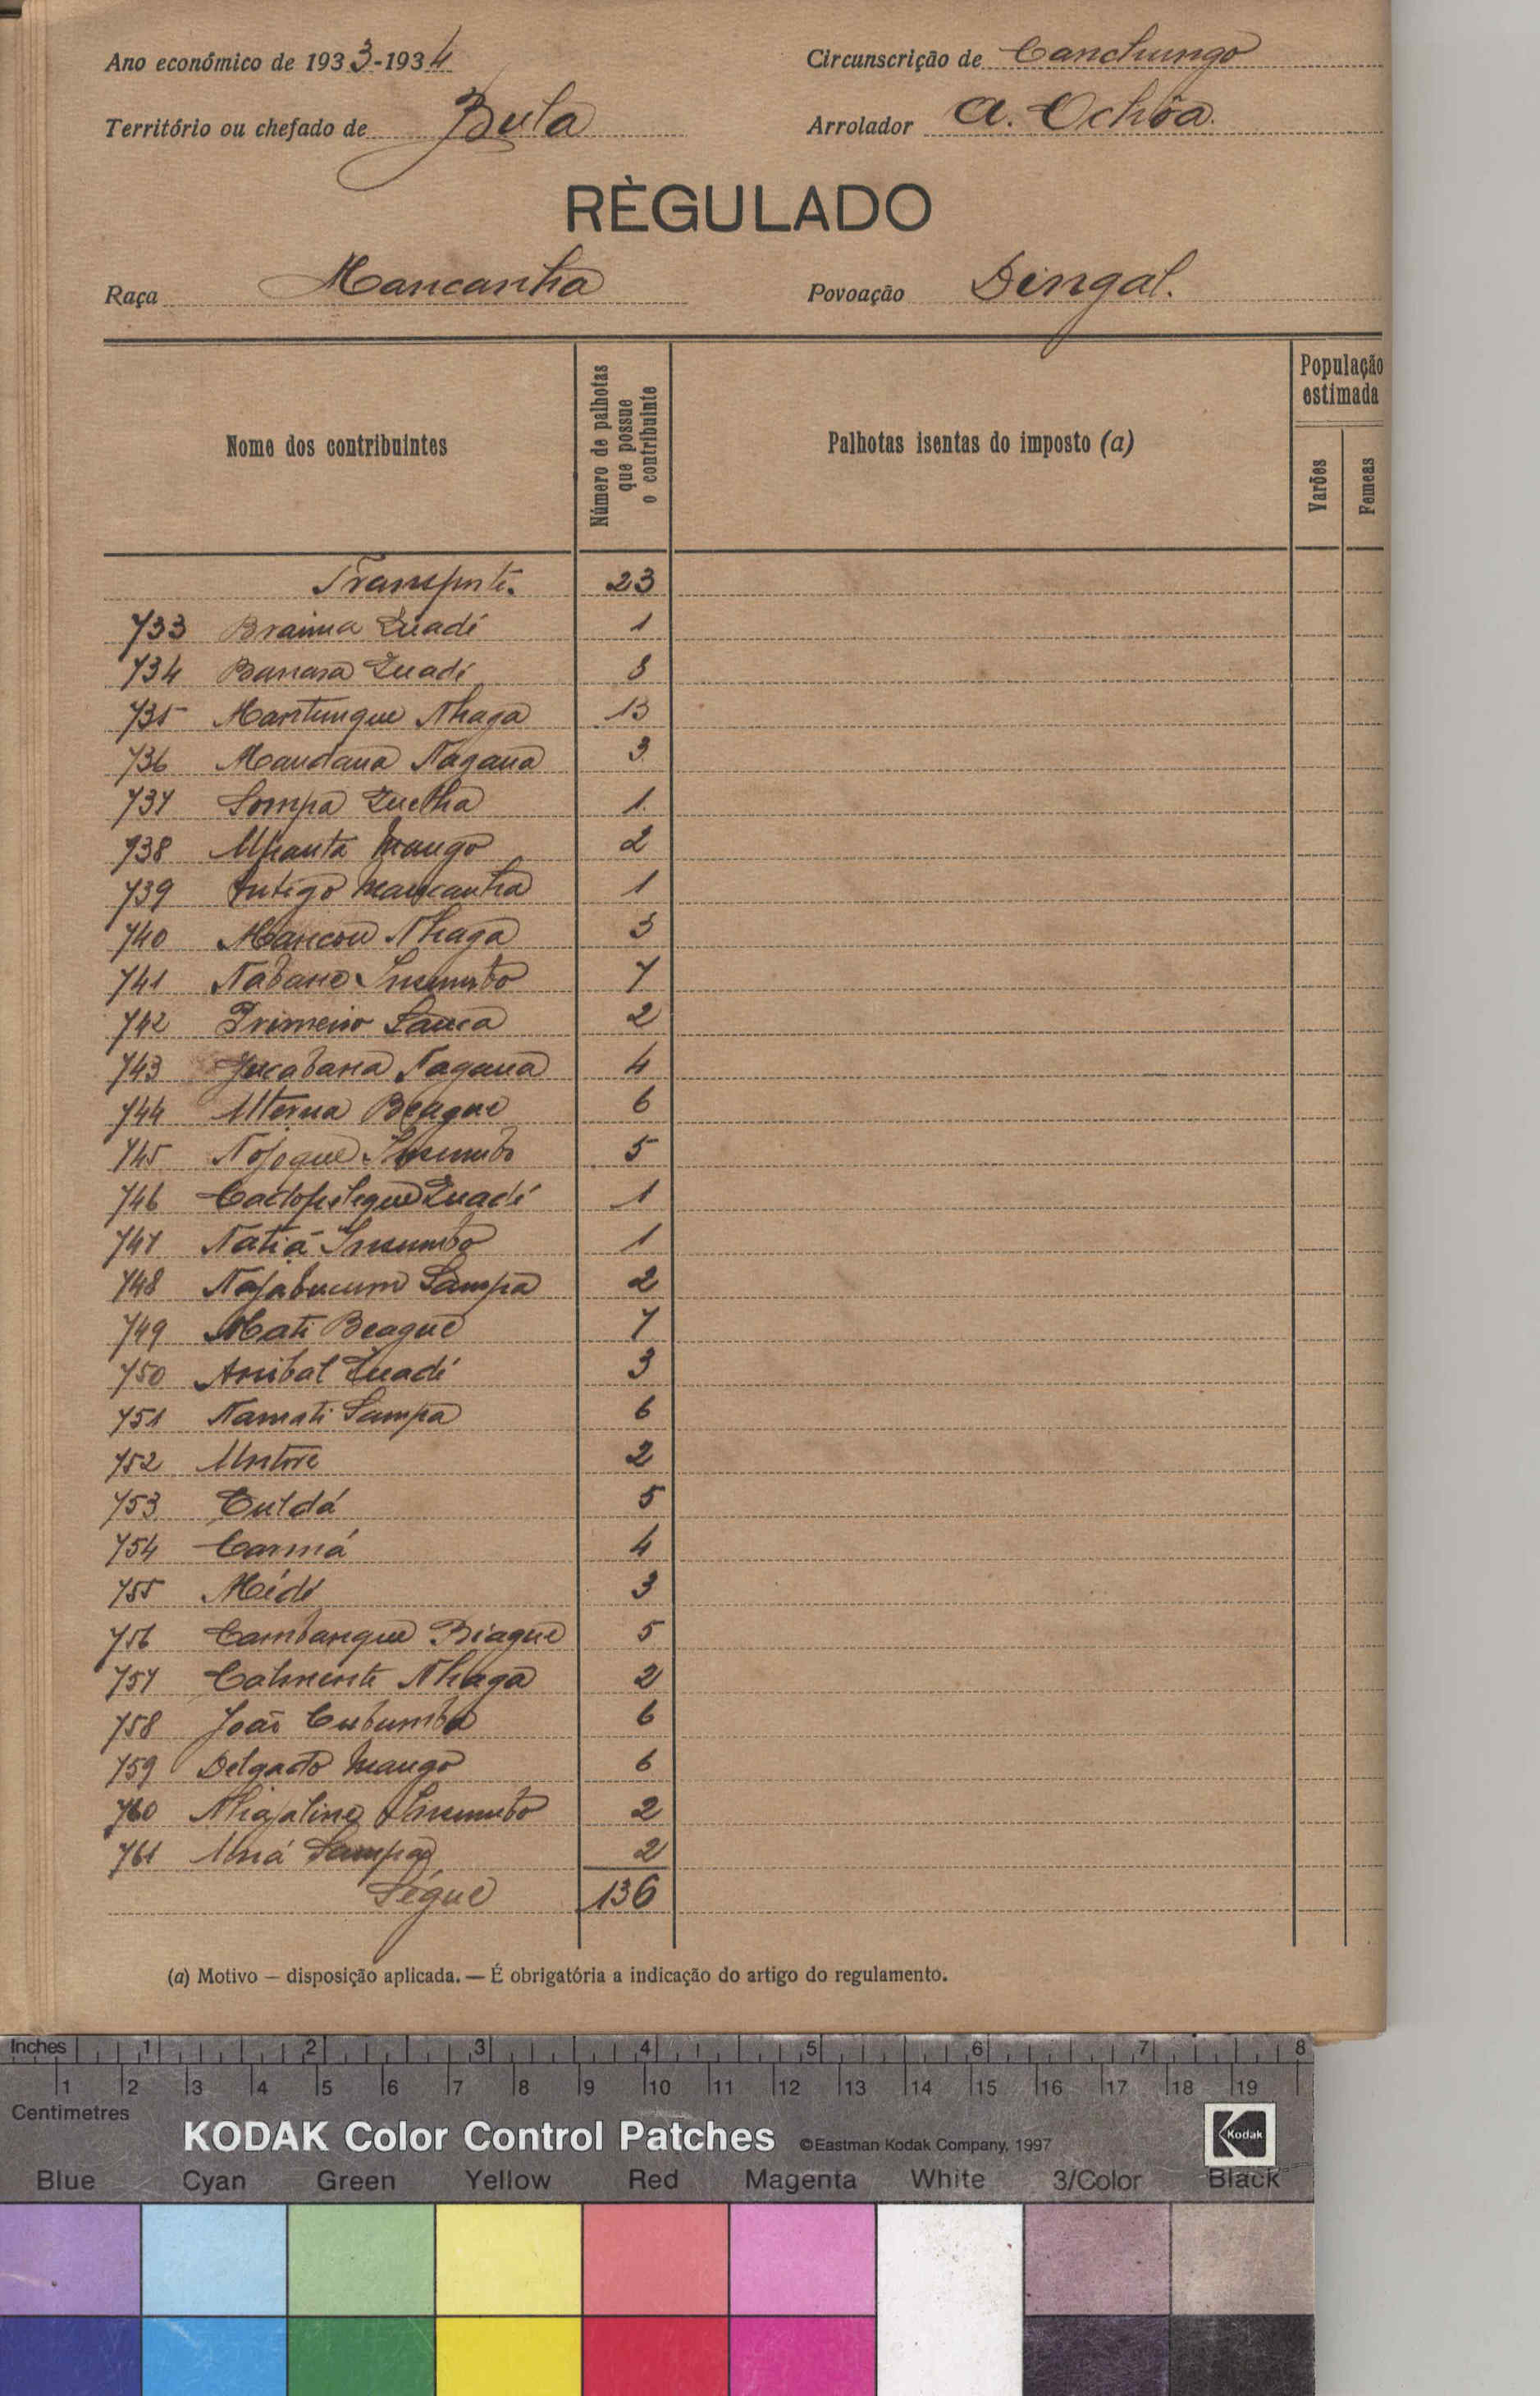 Ano económico de 1933-1934
Circunscrição de Canchungo
Território ou chefado de Bula
Arrolador A. Ochôa.
RÈGULADO
Raça Mancanha
Povoação Dingal.
Nome dos contribuintes
Número de palhotas
que possue
o contribuinte
Palhotas isentas do imposto (a)
População
estimada
Varões
Femeas
Transporte. 23
733 Braima Quadé 1
734 Quadé 3
735 Mantungue Nhaga 13
736 Mandana Nagana 3
737 Sompa 1
738 Mpanta Mango 2
739 Antigo Mancanha 1
740 Mancou Nhaga 3
741 Nabane Insumbo 7
742 Primeiro 2
743 Jucabana Nagana 4
744 Beague 6
745 Insumbo 5
746 Quadé 1
747 Natiá Insumbo 1
748 Sampa 2
749 Mati Beague 7
750 Anibal Quadé 3
751 Namati Sampa 6
752 2
753 5
754 Carmá 4
755 3
756 Cambangue Biague 5
757 Nhaga 2
758 João Cubumba 6
759 Delgado Mango 6
760 Insumbo 2
761 Sampa 2
Ségue 136
(a) Motivo — disposição aplicada. — É obrigatória a indicação do artigo do regulamento.
Inches 1 2 3 4 5 6 7 8
1 2 3 4 5 6 7 8 9 10 11 12 13 14 15 16 17 18 19
Centimetres
KODAK Color Control Patches ©Eastman Kodak Company, 1997 Kodak
Blue Cyan Green Yellow Red Magenta White 3/Color Black